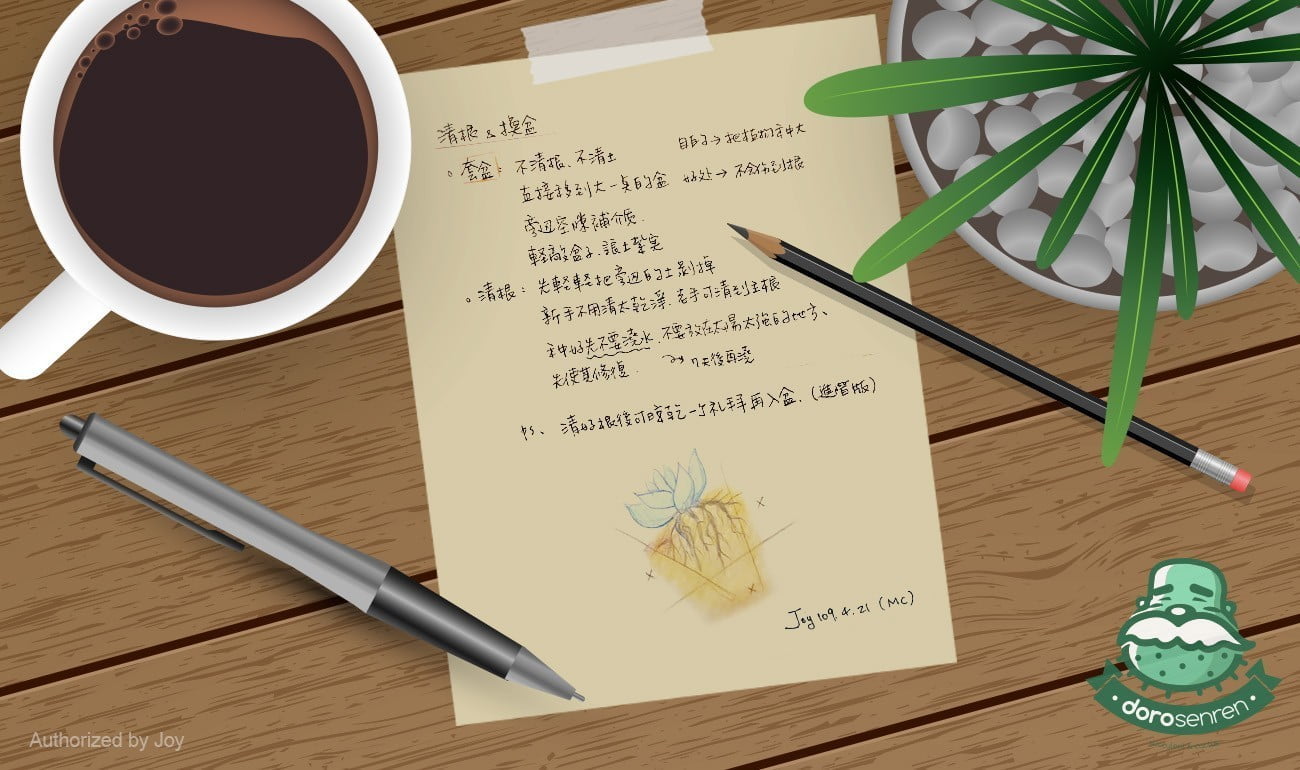 清根 & 換盆
目的→把植物言中大
。套盆: 不清根、不清土
直接移到大一点的盆 好处→不会伤到根
旁边空隙補介质.
輕敲盆子.讓土紮实
。清根: 先輕輕把旁边的土剝掉
新手不用清太乾淨.老手可清到主根
种好先不要澆水.不要放在太昜太強的地方、
先使其修復. 7天後再澆
P.S、 清好根後可晾乾一个礼拜再入盆.(進階版)
Joy 109.4.21 (MC)
dorosenren
Authorized by Joy